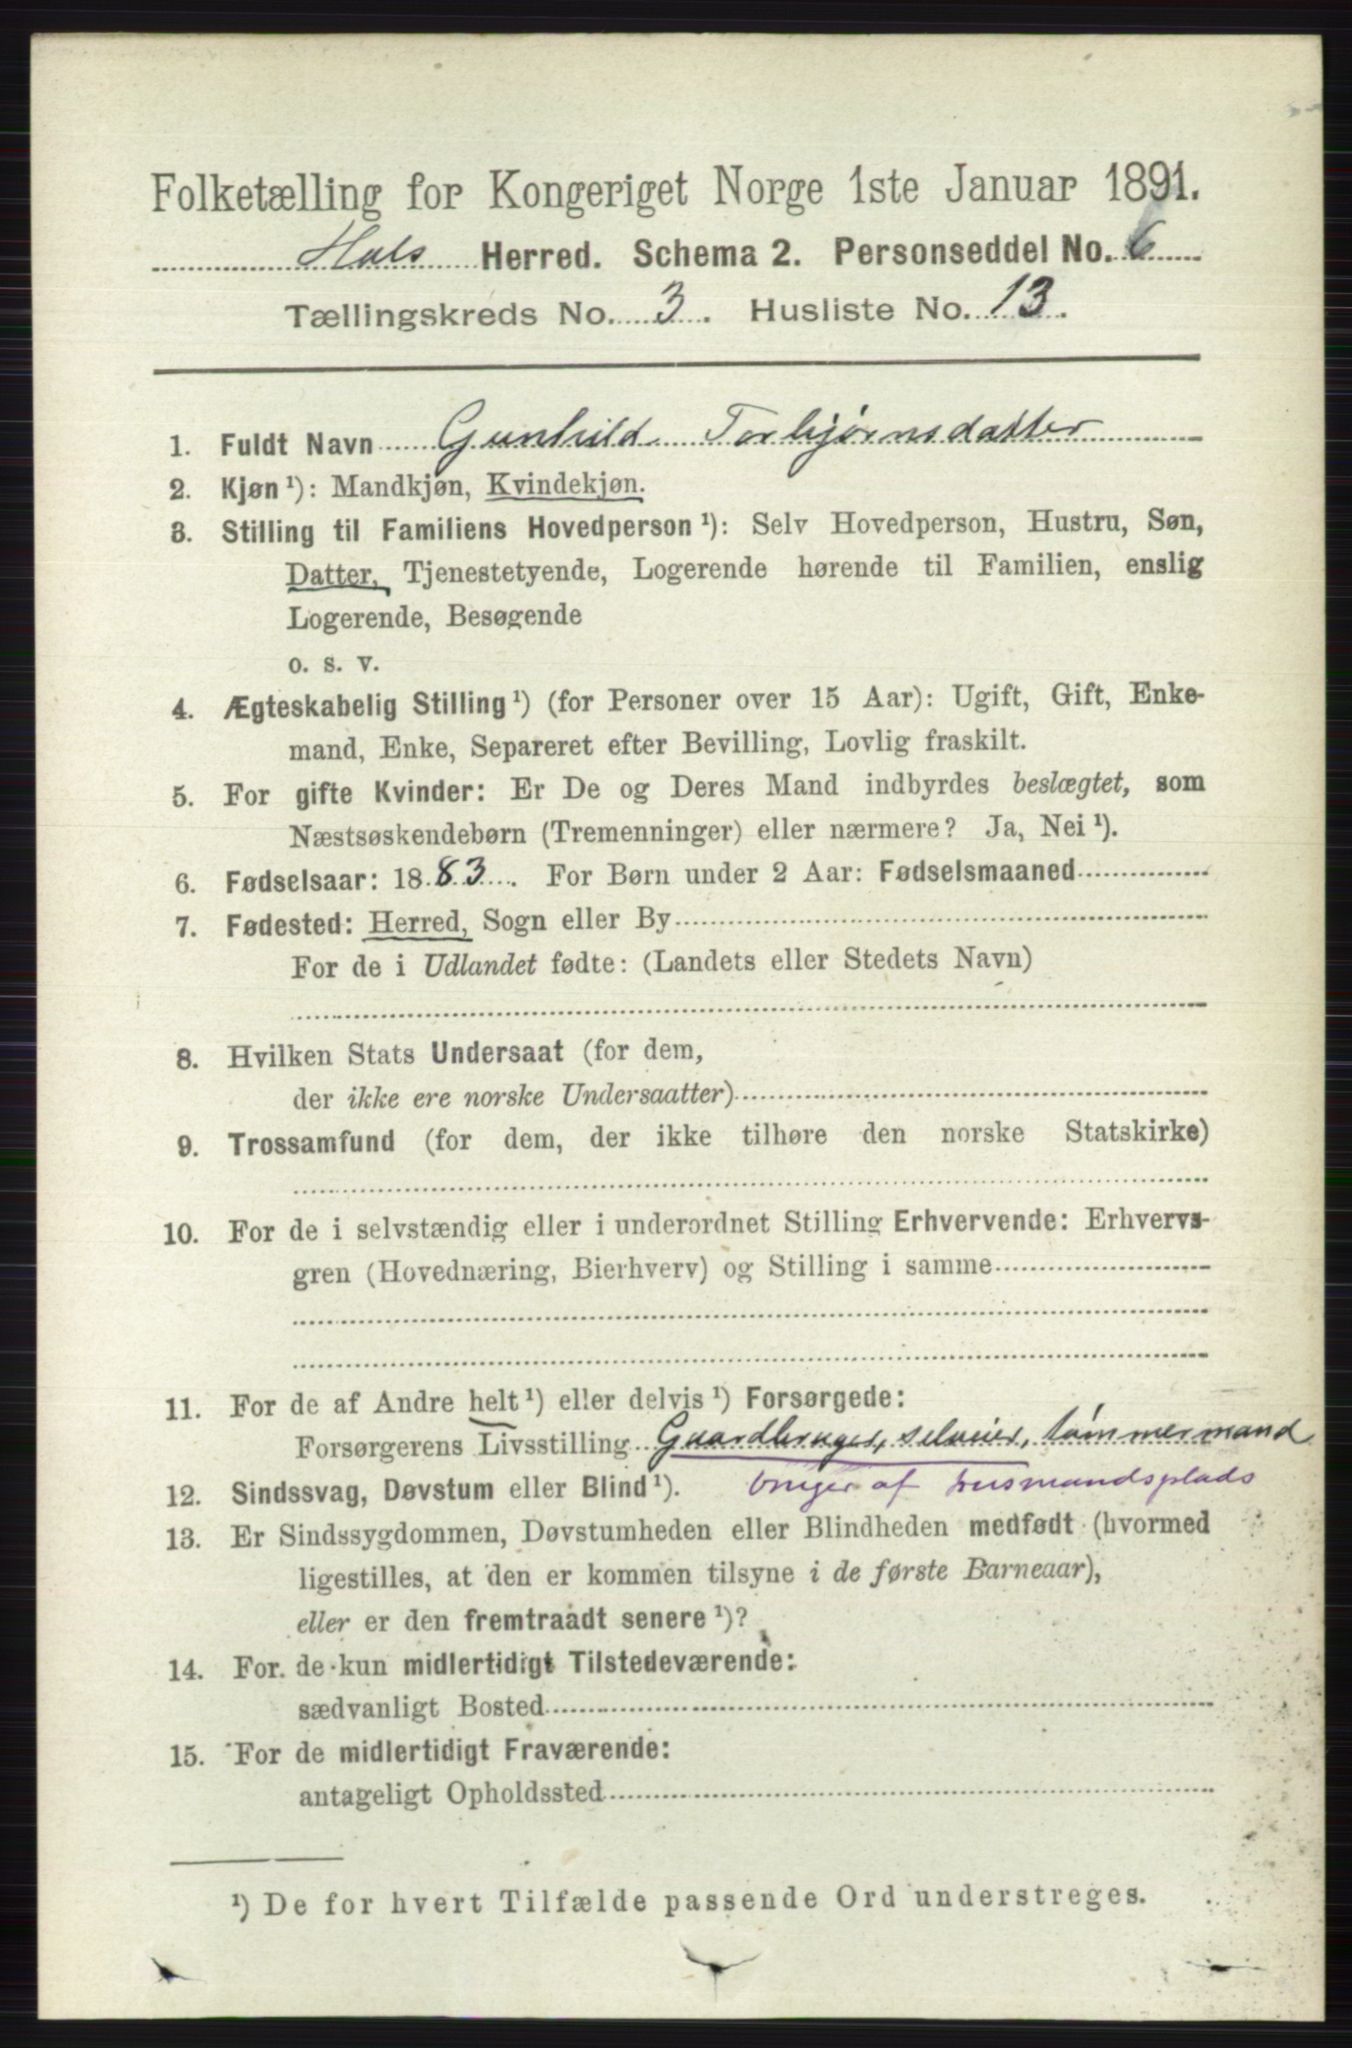 Folketælling for Kongeriget Norge 1ste Januar 1891.
Hals Herred. Schema 2. Personseddel No. 6
Tællingskreds No. 3. Husliste No. 13.
1. Fuldt Navn Gunhild Torbjørnsdatter
2. Kjøn ¹): Mandkjøn, Kvindekjøn.
3. Stilling til Familiens Hovedperson ¹): Selv Hovedperson, Hustru, Søn,
Datter, Tjenestetyende, Logerende hørende til Familien, enslig
Logerende, Besøgende
o. s. v.
4. Ægteskabelig Stilling ¹) (for Personer over 15 Aar): Ugift, Gift, Enke-
mand, Enke, Separeret efter Bevilling, Lovlig fraskilt.
5. For gifte Kvinder: Er De og Deres Mand indbyrdes beslægtet, som
Næstsøskendebørn (Tremenninger) eller nærmere? Ja, Nei ¹).
6. Fødselsaar: 1883. For Børn under 2 Aar: Fødselsmaaned
7. Fødested: Herred, Sogn eller By
For de i Udlandet fødte: (Landets eller Stedets Navn)
8. Hvilken Stats Undersaat (for dem,
der ikke ere norske Undersaatter)
9. Trossamfund (for dem, der ikke tilhøre den norske Statskirke)
10. For de i selvstændig eller i underordnet Stilling Erhvervende: Erhvervs-
gren (Hovednæring, Bierhverv) og Stilling i samme
11. For de af Andre helt ¹) eller delvis ¹) Forsørgede:
Forsørgerens Livsstilling Gaardbruger, selveier, tømmermand
bruger af husmandsplads
12. Sindssvag, Døvstum eller Blind ¹).
13. Er Sindssygdommen, Døvstumheden eller Blindheden medfødt (hvormed
ligestilles, at den er kommen tilsyne i de første Barneaar),
eller er den fremtraadt senere ¹)?
14. For de kun midlertidigt Tilstedeværende:
sædvanligt Bosted
15. For de midlertidigt Fraværende:
antageligt Opholdssted
¹) De for hvert Tilfælde passende Ord understreges.